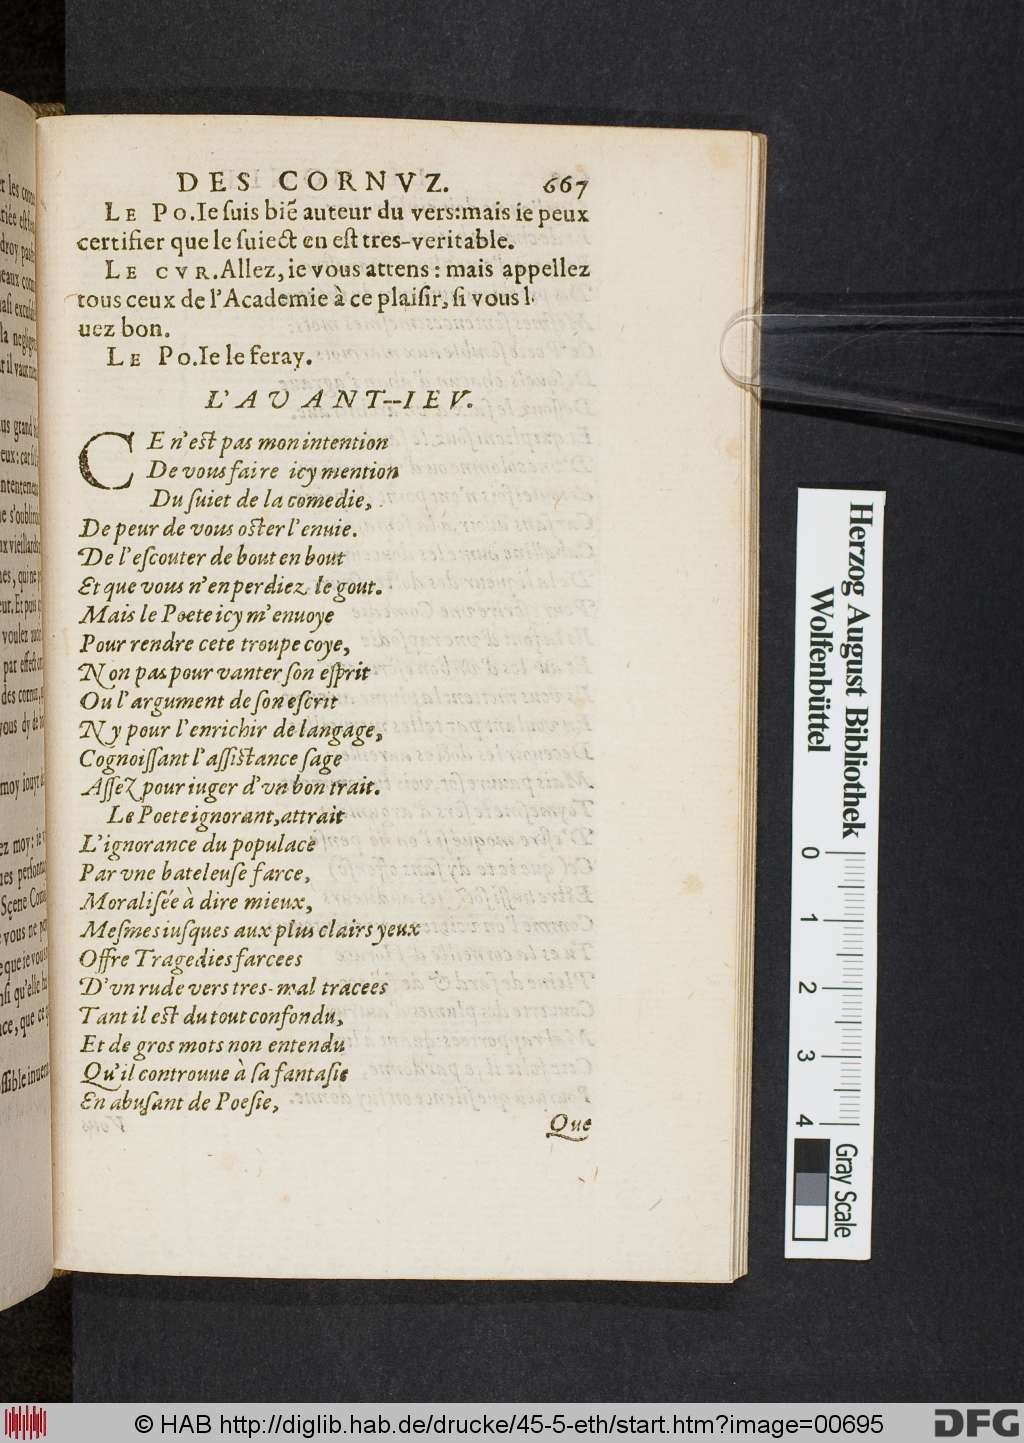 DES CORNVZ. 667
LE PO. Ie ſuis biẽ auteur du vers: mais ie peux
certifier que le ſuiect en eſt tres-veritable.
LE CVR. Allez, ie vous attens: mais appellez
tous ceux de l'Academie à ce plaiſir, ſi vous l
uez bon.
LE PO. Ie le feray.
L'AVANT--IEV.
CE n'eſt pas mon intention
De vous faire icy mention
Du ſuiet de la comedie,
De peur de vous oſter l'enuie.
De l'eſcouter de bout en bout
Et que vous n'en perdiez le gout.
Mais le Poete icy m'enuoye
Pour rendre cete troupe coye,
Non pas pour vanter ſon eſprit
Ou l'argument de ſon eſcrit
Ny pour l'enrichir de langage,
Cognoiſſant l'aſſiſtance ſage
Aſſez pour iuger d'vn bon trait.
Le Poete ignorant, attrait
L'ignorance du populace
Par vne bateleuſe farce,
Moraliſée à dire mieux,
Meſmes iuſques aux plus clairs yeux
Offre Tragedies farcees
D'vn rude vers tres-mal tracees
Tant il eſt du tout confondu,
Et de gros mots non entendu
Qu'il controuue à ſa fantaſie
En abuſant de Poeſie,
Que
Herzog August Bibliothek
Wolfenbüttel
0 1 2 3 4
Gray Scale
© HAB http://diglib.hab.de/drucke/45-5-eth/start.htm?image=00695
DFG